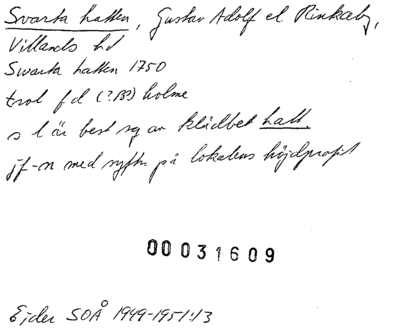 Svarta hatten, Gustav Adolf el Rinkaby,
Villands hd
Swarta hatten 1750
trol f d (?BB) holme
s l är best sg av klädbet hatt
jf-n med syftn på lokalens höjdprofil
00031609
Ejder SOÅ 1949-1951:13